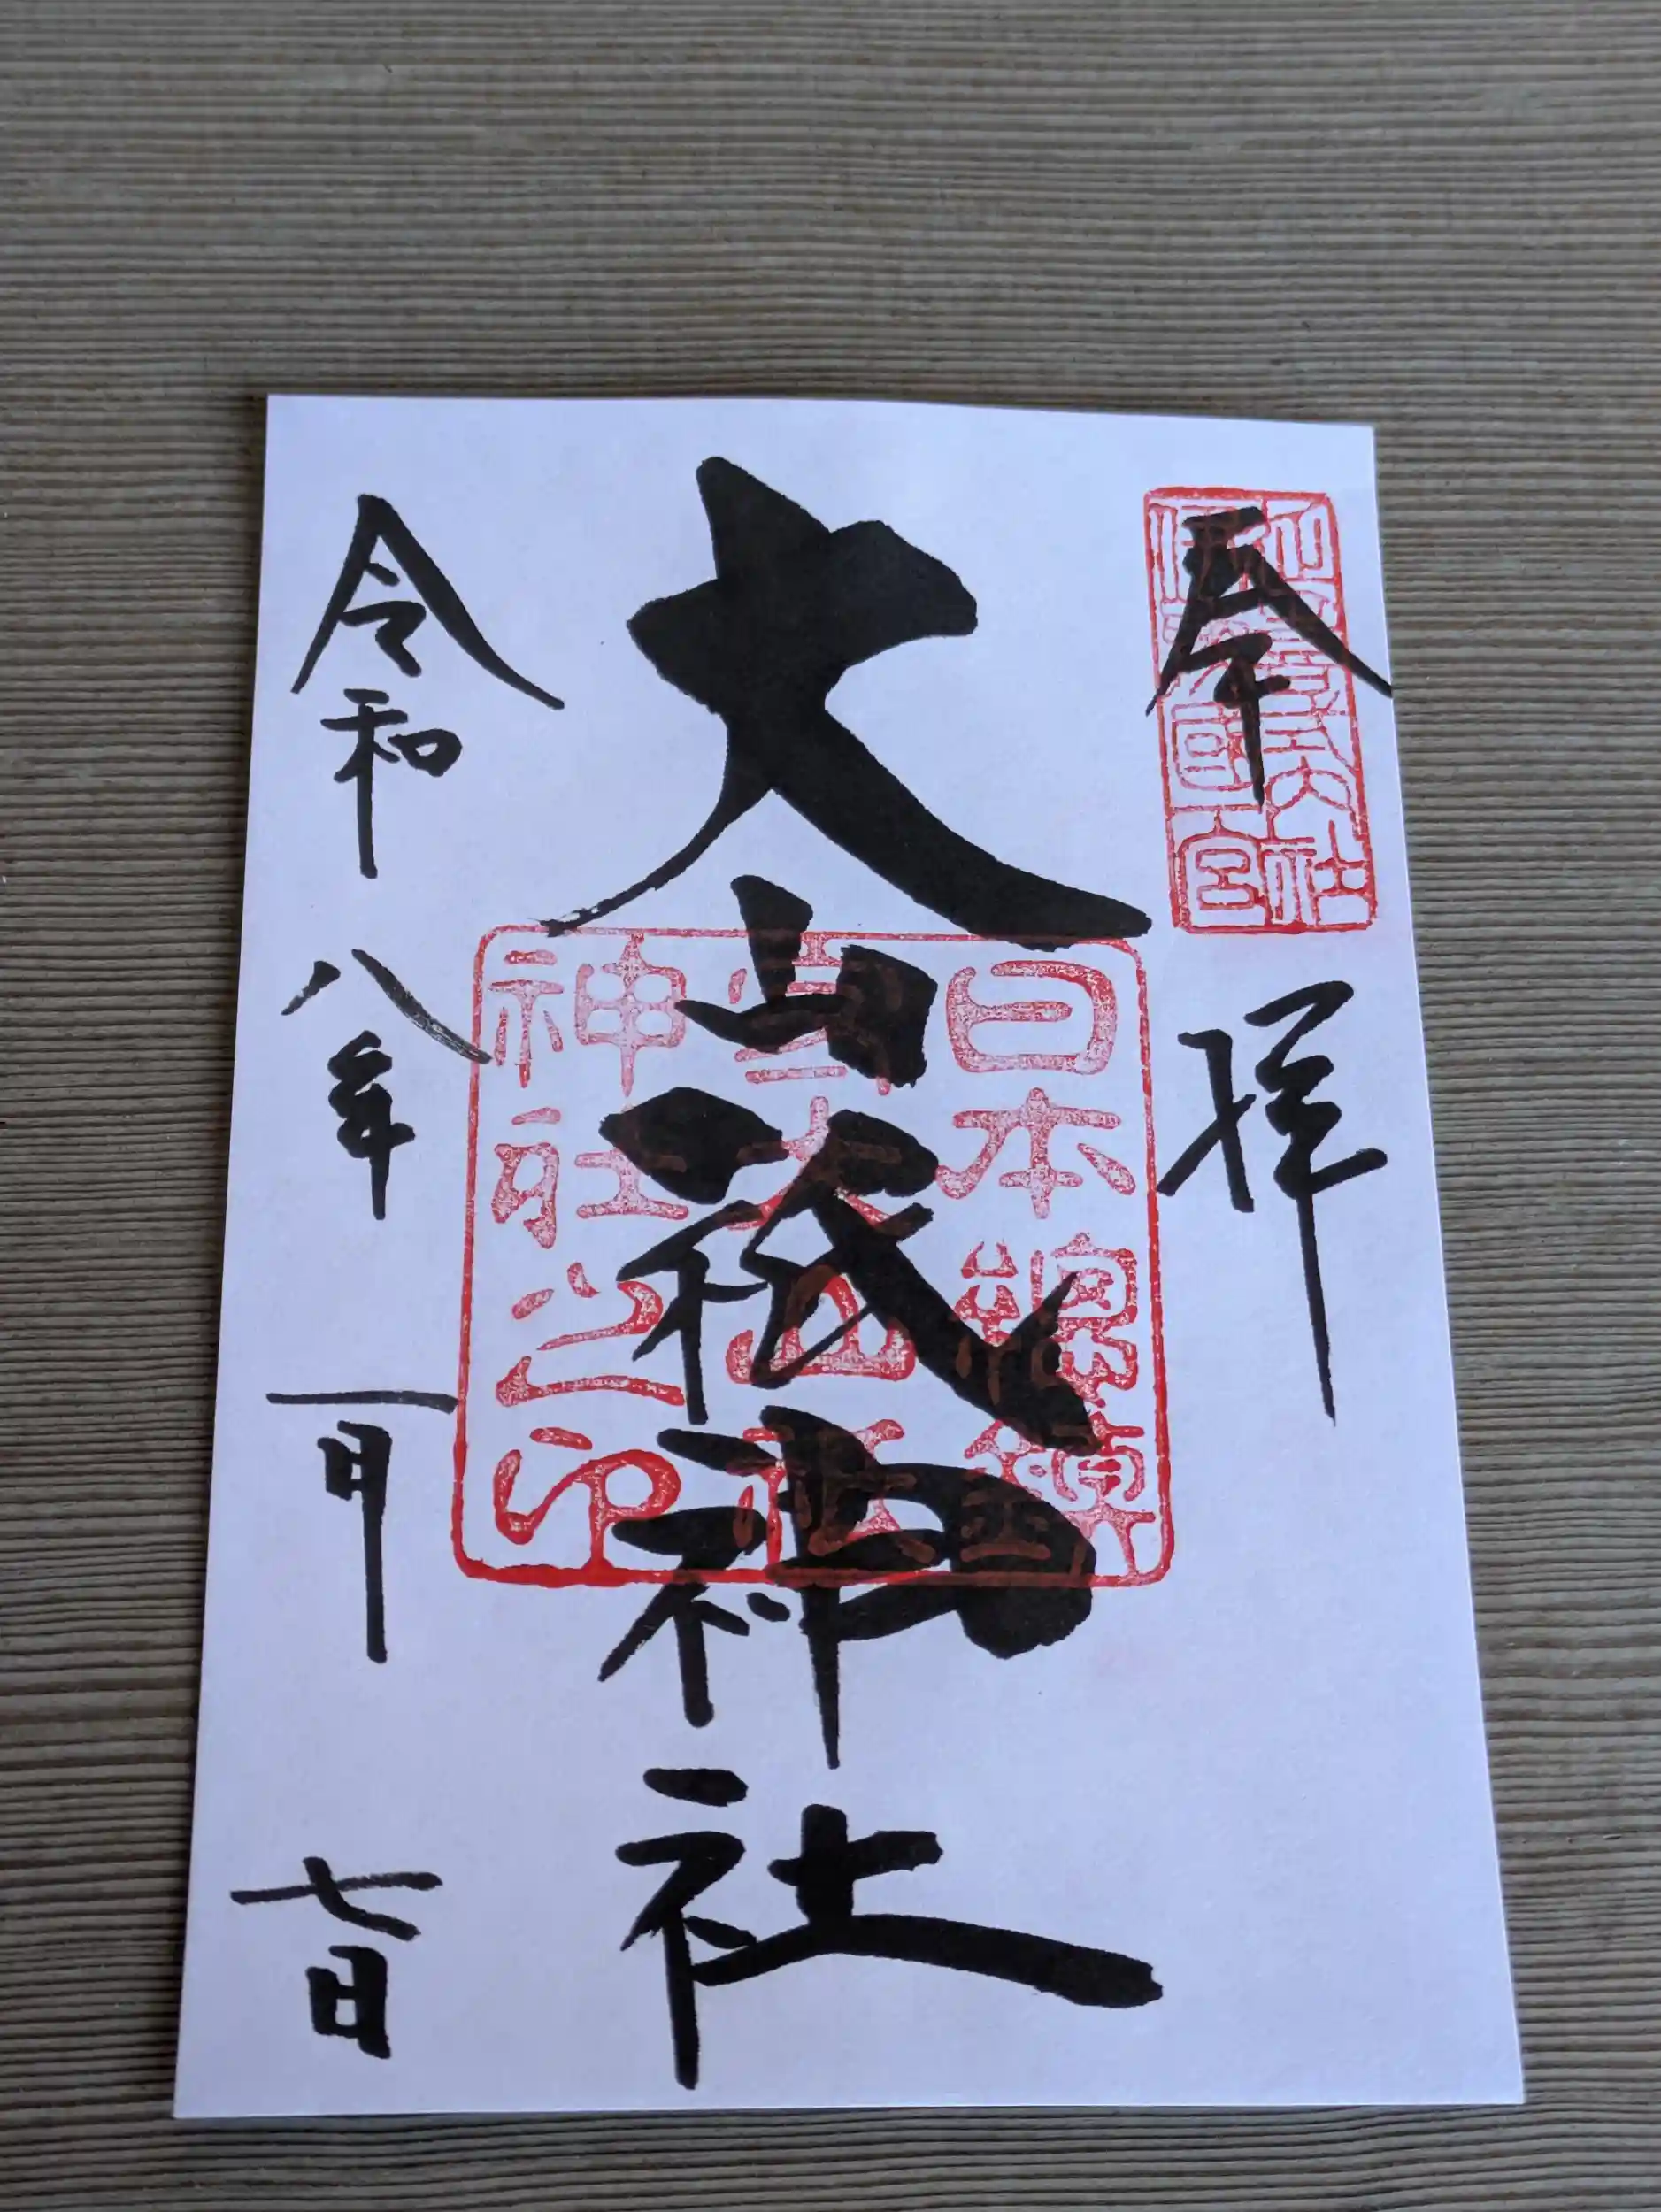 奉拝
延喜式内社
伊豫國一宮
大山祇神社
日本總鎮
守大山祇
神社之印
令和八年一月七日